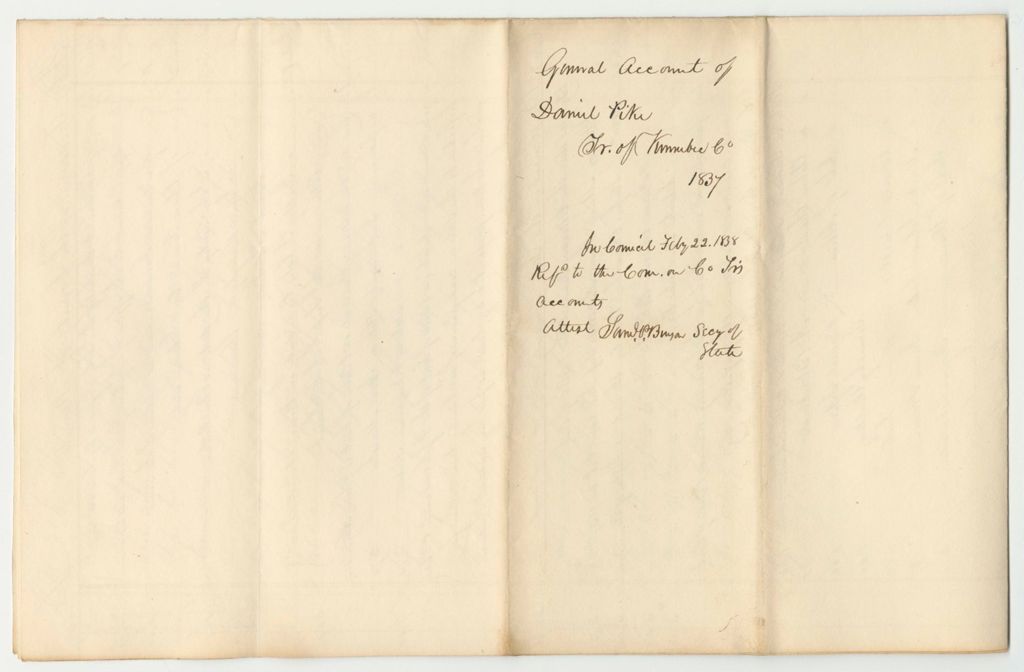 General Account of
Daniel Pike
Tr. of Kennebec Co
1837
In Council Feby 22. 1838
Refd to the Com. on Co Trs
Accounts
Attest Saml. P. Benson Secy of
State